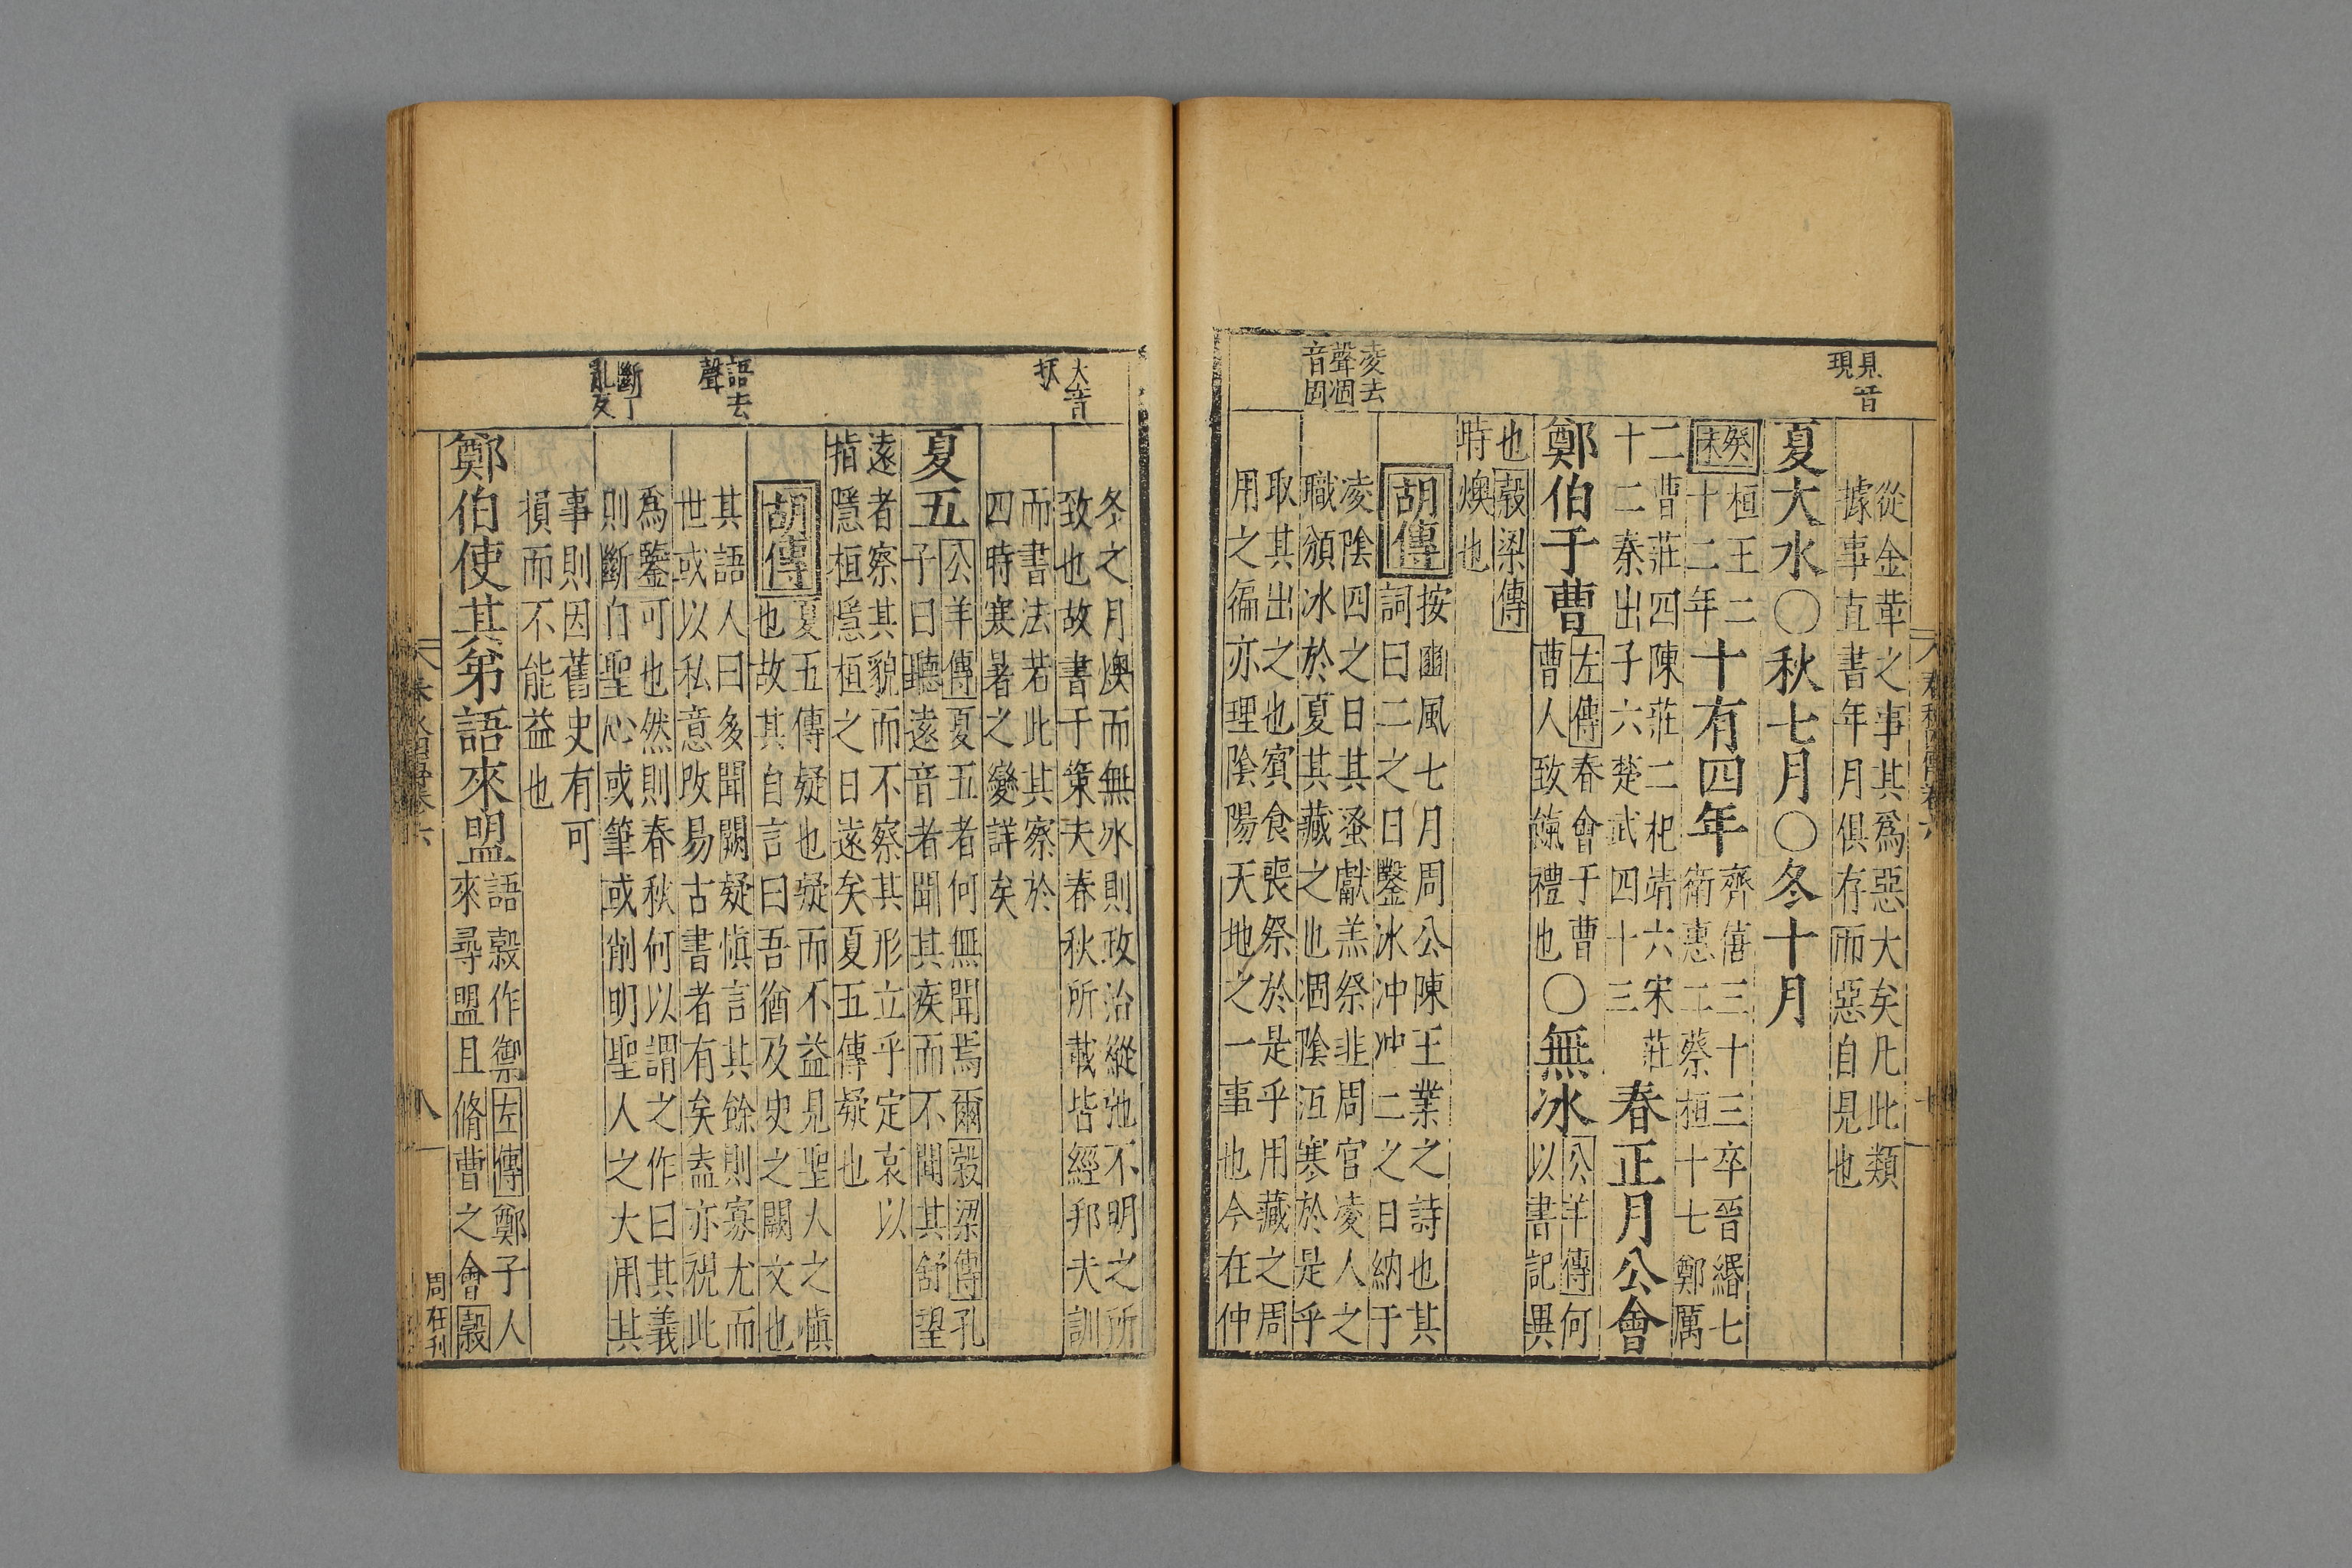 見音
現
從金革之事其爲惡大矣凡此類
據事直書年月俱存而惡自見也
夏大水○秋七月○冬十月
癸未
桓王二
十二年
十有四年
齊僖三十三卒晉緡七
衛惠二蔡桓十七鄭厲
二曹莊四陳莊二杞靖六宋莊
十二秦出子六楚武四十三
春正月公會
鄭伯于曹
左傳春會于曹
曹人致餼禮也
○無冰
公羊傳何
以書記異
也穀梁傳
時燠也
凌去
聲涸
音固
胡傳
按豳風七月周公陳王業之詩也其
詞曰二之日鑿冰冲冲二之日納于
凌陰四之日其蚤獻羔祭韭周官凌人之
職頒冰於夏其藏之也涸陰沍寒於是乎
取其出之也賓食喪祭於是乎用藏之周
用之徧亦理陰陽天地之一事也今在仲
冬之月燠而無冰則政治縱弛不明之所
致也故書于策夫春秋所載皆經邦大訓
大音
扶
而書法若此其察於
四時寒暑之變詳矣
夏五
公羊傳夏五者何無聞焉爾穀梁傳孔
子曰聽遠音者聞其疾而不聞其舒望
遠者察其貌而不察其形立乎定哀以
指隱桓隱桓之日遠矣夏五傳疑也
胡傳
夏五傳疑也疑而不益見聖人之慎
也故其自言曰吾猶及史之闕文也
語去
聲
其語人曰多聞闕疑慎言其餘則寡尤而
世或以私意改易古書者有矣盍亦視此
爲鑒可也然則春秋何以謂之作曰其義
則斷自聖心或筆或削明聖人之大用其
斷丁
亂反
事則因舊史有可
損而不能益也
鄭伯使其弟語來盟
語穀作禦左傳鄭子人
來尋盟且脩曹之會穀
八
周在刊